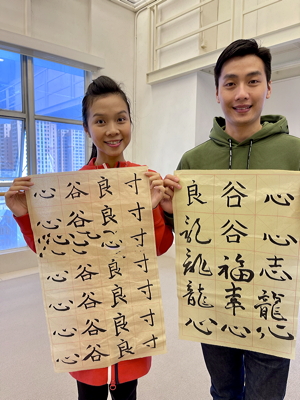 心谷良寸
心谷良寸
心谷良寸
心谷良寸
心谷良寸
心谷良寸
良谷心
谷心
福志
龍龍
心心心